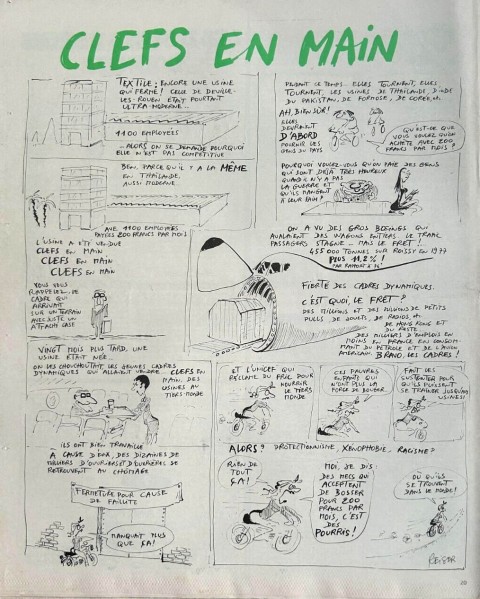 CLEFS EN MAIN
TEXTILE : ENCORE UNE USINE
QUI FERME ! CELLE DE DEVILLE-
LES-ROUEN ETAIT POURTANT
ULTRA-MODERNE...
1100 EMPLOYÉES
- ALORS ON SE DEMANDE POURQUOI
ELLE N'EST PAS COMPETITIVE
BEN, PARCE QU'IL Y A LA MÊME
EN THAÏLANDE.
AUSSI MODERNE...
AVEC 1100 EMPLOYÉES
PAYÉES 200 FRANCS PAR MOIS
L'USINE A ÉTÉ VENDUE
CLEFS EN MAIN
CLEFS EN MAIN
CLEFS EN MAIN
VOUS VOUS
RAPPELEZ, CE
CADRE QUI
ARRIVAIT
SUR UN TERRAIN
AVEC JUSTE UN
ATTACHÉ CASE
VINGT MOIS PLUS TARD, UNE
USINE ÉTAIT NÉE...
ON LES CHOUCHOUTAIT, LES JEUNES CADRES
DYNAMIQUES QUI ALLAIENT VENDRE CLEFS EN
MAIN, DES
USINES AU
TIERS-MONDE
ILS ONT BIEN TRAVAILLÉ
À CAUSE D'EUX, DES DIZAINES DE
MILLIERS D'OUVRIERS ET D'OUVRIÈRES SE
RETROUVENT AU CHOMAGE
FERMETURE POUR CAUSE
DE FAILLITE
MANQUAIT PLUS
QUE ÇA !
PENDANT CE TEMPS, ELLES TOURNENT, ELLES
TOURNENT, LES USINES DE THAÏLANDE, D'INDE
DU PAKISTAN, DE FORMOSE, DE CORÉE,
AH, BIEN SÛR !
ELLES
DEVRAIENT
D'ABORD
FOURNIR LES
GENS DU PAYS
QU'EST-CE QUE
VOUS VOULEZ QU'ON
ACHÈTE AVEC 200
FRANCS PAR MOIS
POURQUOI VOULEZ-VOUS QU'ON PAIE DES GENS
QUI SONT DÉJÀ TRÈS HEUREUX
QUAND IL N'Y A PAS
LA GUERRE ET
QU'ILS MANGENT
À LEUR FAIM ?
ON A VU DES GROS BOEINGS QUI
AVALAIENT DES WAGONS ENTIERS. LE TRAFIC
PASSAGERS STAGNE... MAIS LE FRET !
455 000 TONNES SUR ROISSY EN 1977
PLUS 11,2% !
PAR RAPPORT À
FIERTÉ DES CADRES DYNAMIQUES.
C'EST QUOI LE FRET ?
DES MILLIONS ET DES MILLIONS DE PETITS
PULLS, DE JOUETS, DE RADIOS,
DE HONG KONG ET
DU RESTE.
DES MILLIERS D'EMPLOIS EN
MOINS EN FRANCE EN CONSOM-
MANT DU PÉTROLE ET DE L'AVION
AMERICAIN. BRAVO, LES CADRES !
ET L'UNICEF QUI
RÉCLAME DU FRIC POUR
NOURRIR LE
TIERS MONDE
CES PAUVRES
ENFANTS QUI
N'ONT PLUS LA
FORCE DE BOUGER
FAUT LES
SUSTENTER POUR
QU'ILS PUISSENT
SE TRAINER JUSQU'AUX
USINES !
ALORS ? PROTECTIONNISME, XÉNOPHOBIE, RACISME ?
RIEN DE
TOUT
ÇA !
MOI, JE DIS :
DES MECS QUI
ACCEPTENT
DE BOSSER
POUR 200
FRANCS PAR
MOIS, C'EST
DES
POURRIS !
OÙ QU'ILS
SE TROUVENT
DANS LE MONDE !
REISER